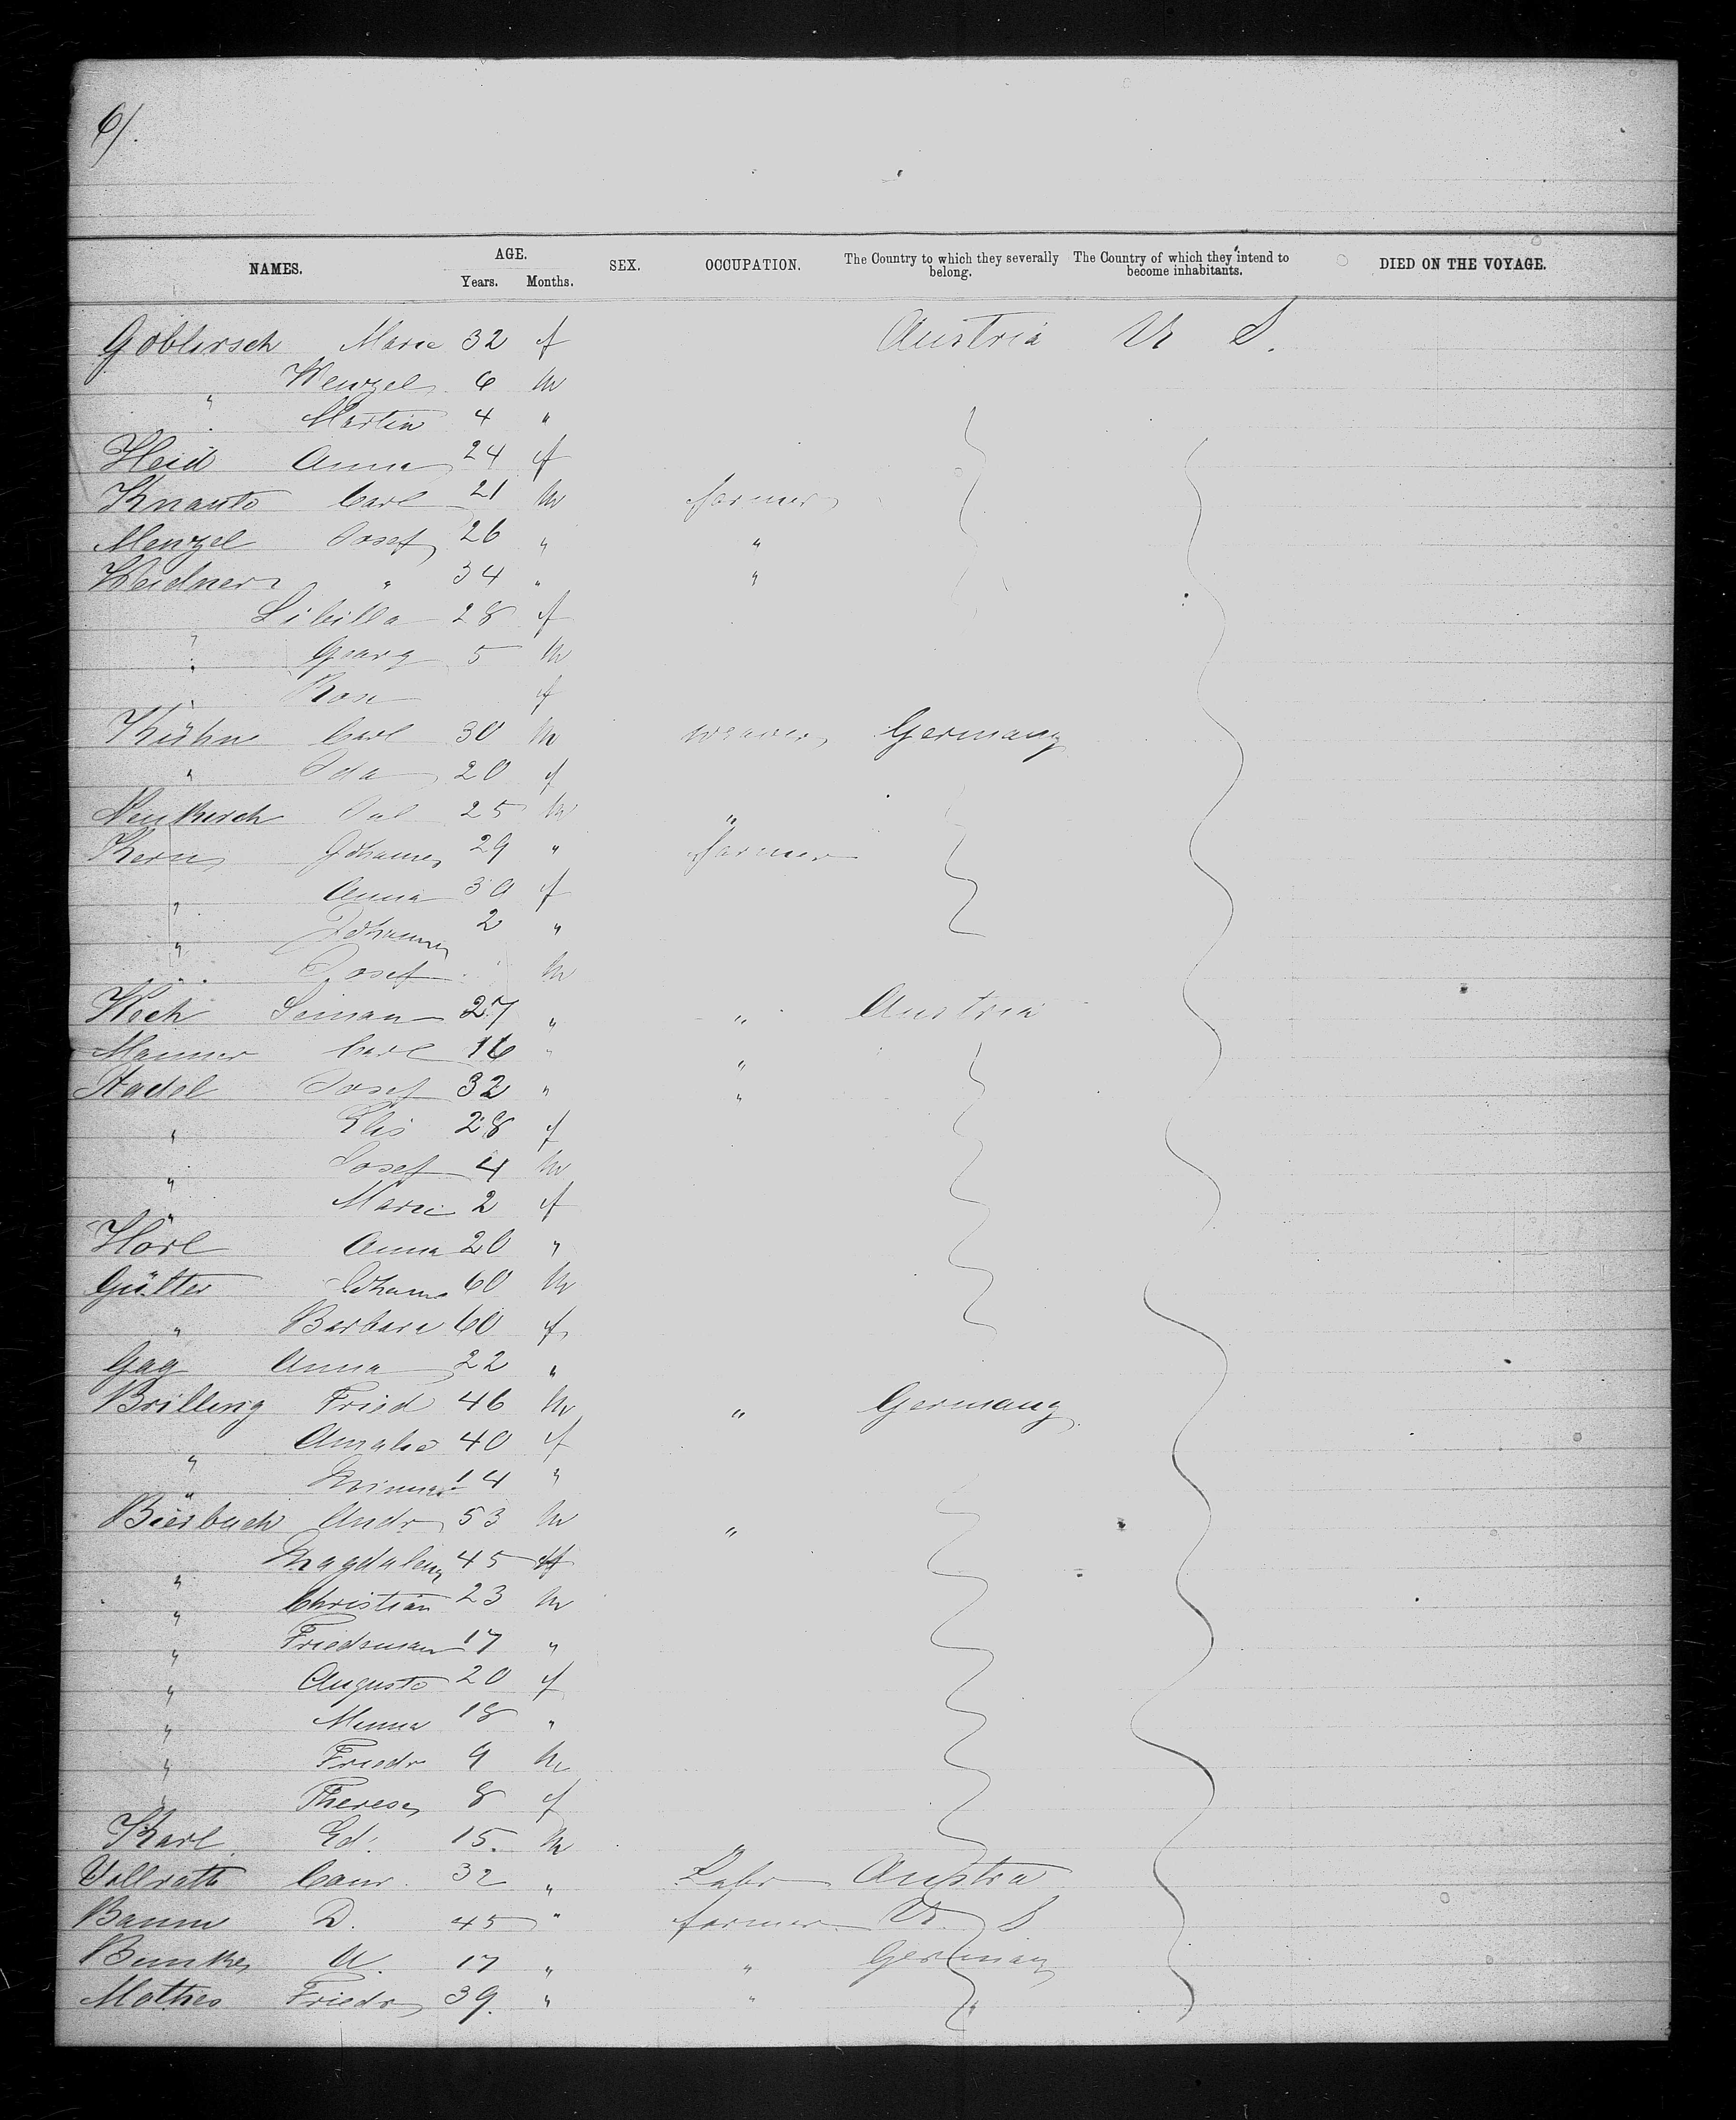 6/.
NAMES. AGE. Years. Months. SEX. OCCUPATION. The Country to which they severally belong. The Country of which they intend to become inhabitants. DIED ON THE VOYAGE.
Goblirsch Marie 32 f Austria U S.
" Wenzel 6 m
" Martin 4 "
Heid Anna 24 f
Knauto Carl 21 m farmer
Menzel Josef 26 " "
Weidner " 34 " "
" Sibilla 28 f
" Georg 5 m
" Rosa f
Kühne Carl 30 m weaver Germany
" Ida 20 f
Neukirch Jul 25 m "
Kern Johannes 29 " farmer
" Anna 30 f
" Johanna 2 "
" Josef m
Koch Simon 27 " " Austria
Manner Carl 16 " "
Stadel Josef 32 " "
" Elis 28 f
" Josef 4 m
" Marie 2 f
Hörl Anna 20 "
Gülter Johann 60 m
" Barbara 60 f
Gag Anna 22 "
Brilling Fried 46 m " Germany
" Amalie 40 f
" 14 "
Bierbach Andr 53 m "
" Magdalena 45 f
" Christian 23 m
" Friedeman 17 "
" Auguste 20 f
" Minna 18 "
" Friedr 9 m
" Therese 8 f
Karl Ed. 15. m
Vollrath 32 " Labr Austria
Baum D. 45 " farmer U S
A. 17 " " Germany
Mothes Friedr 39. " " "